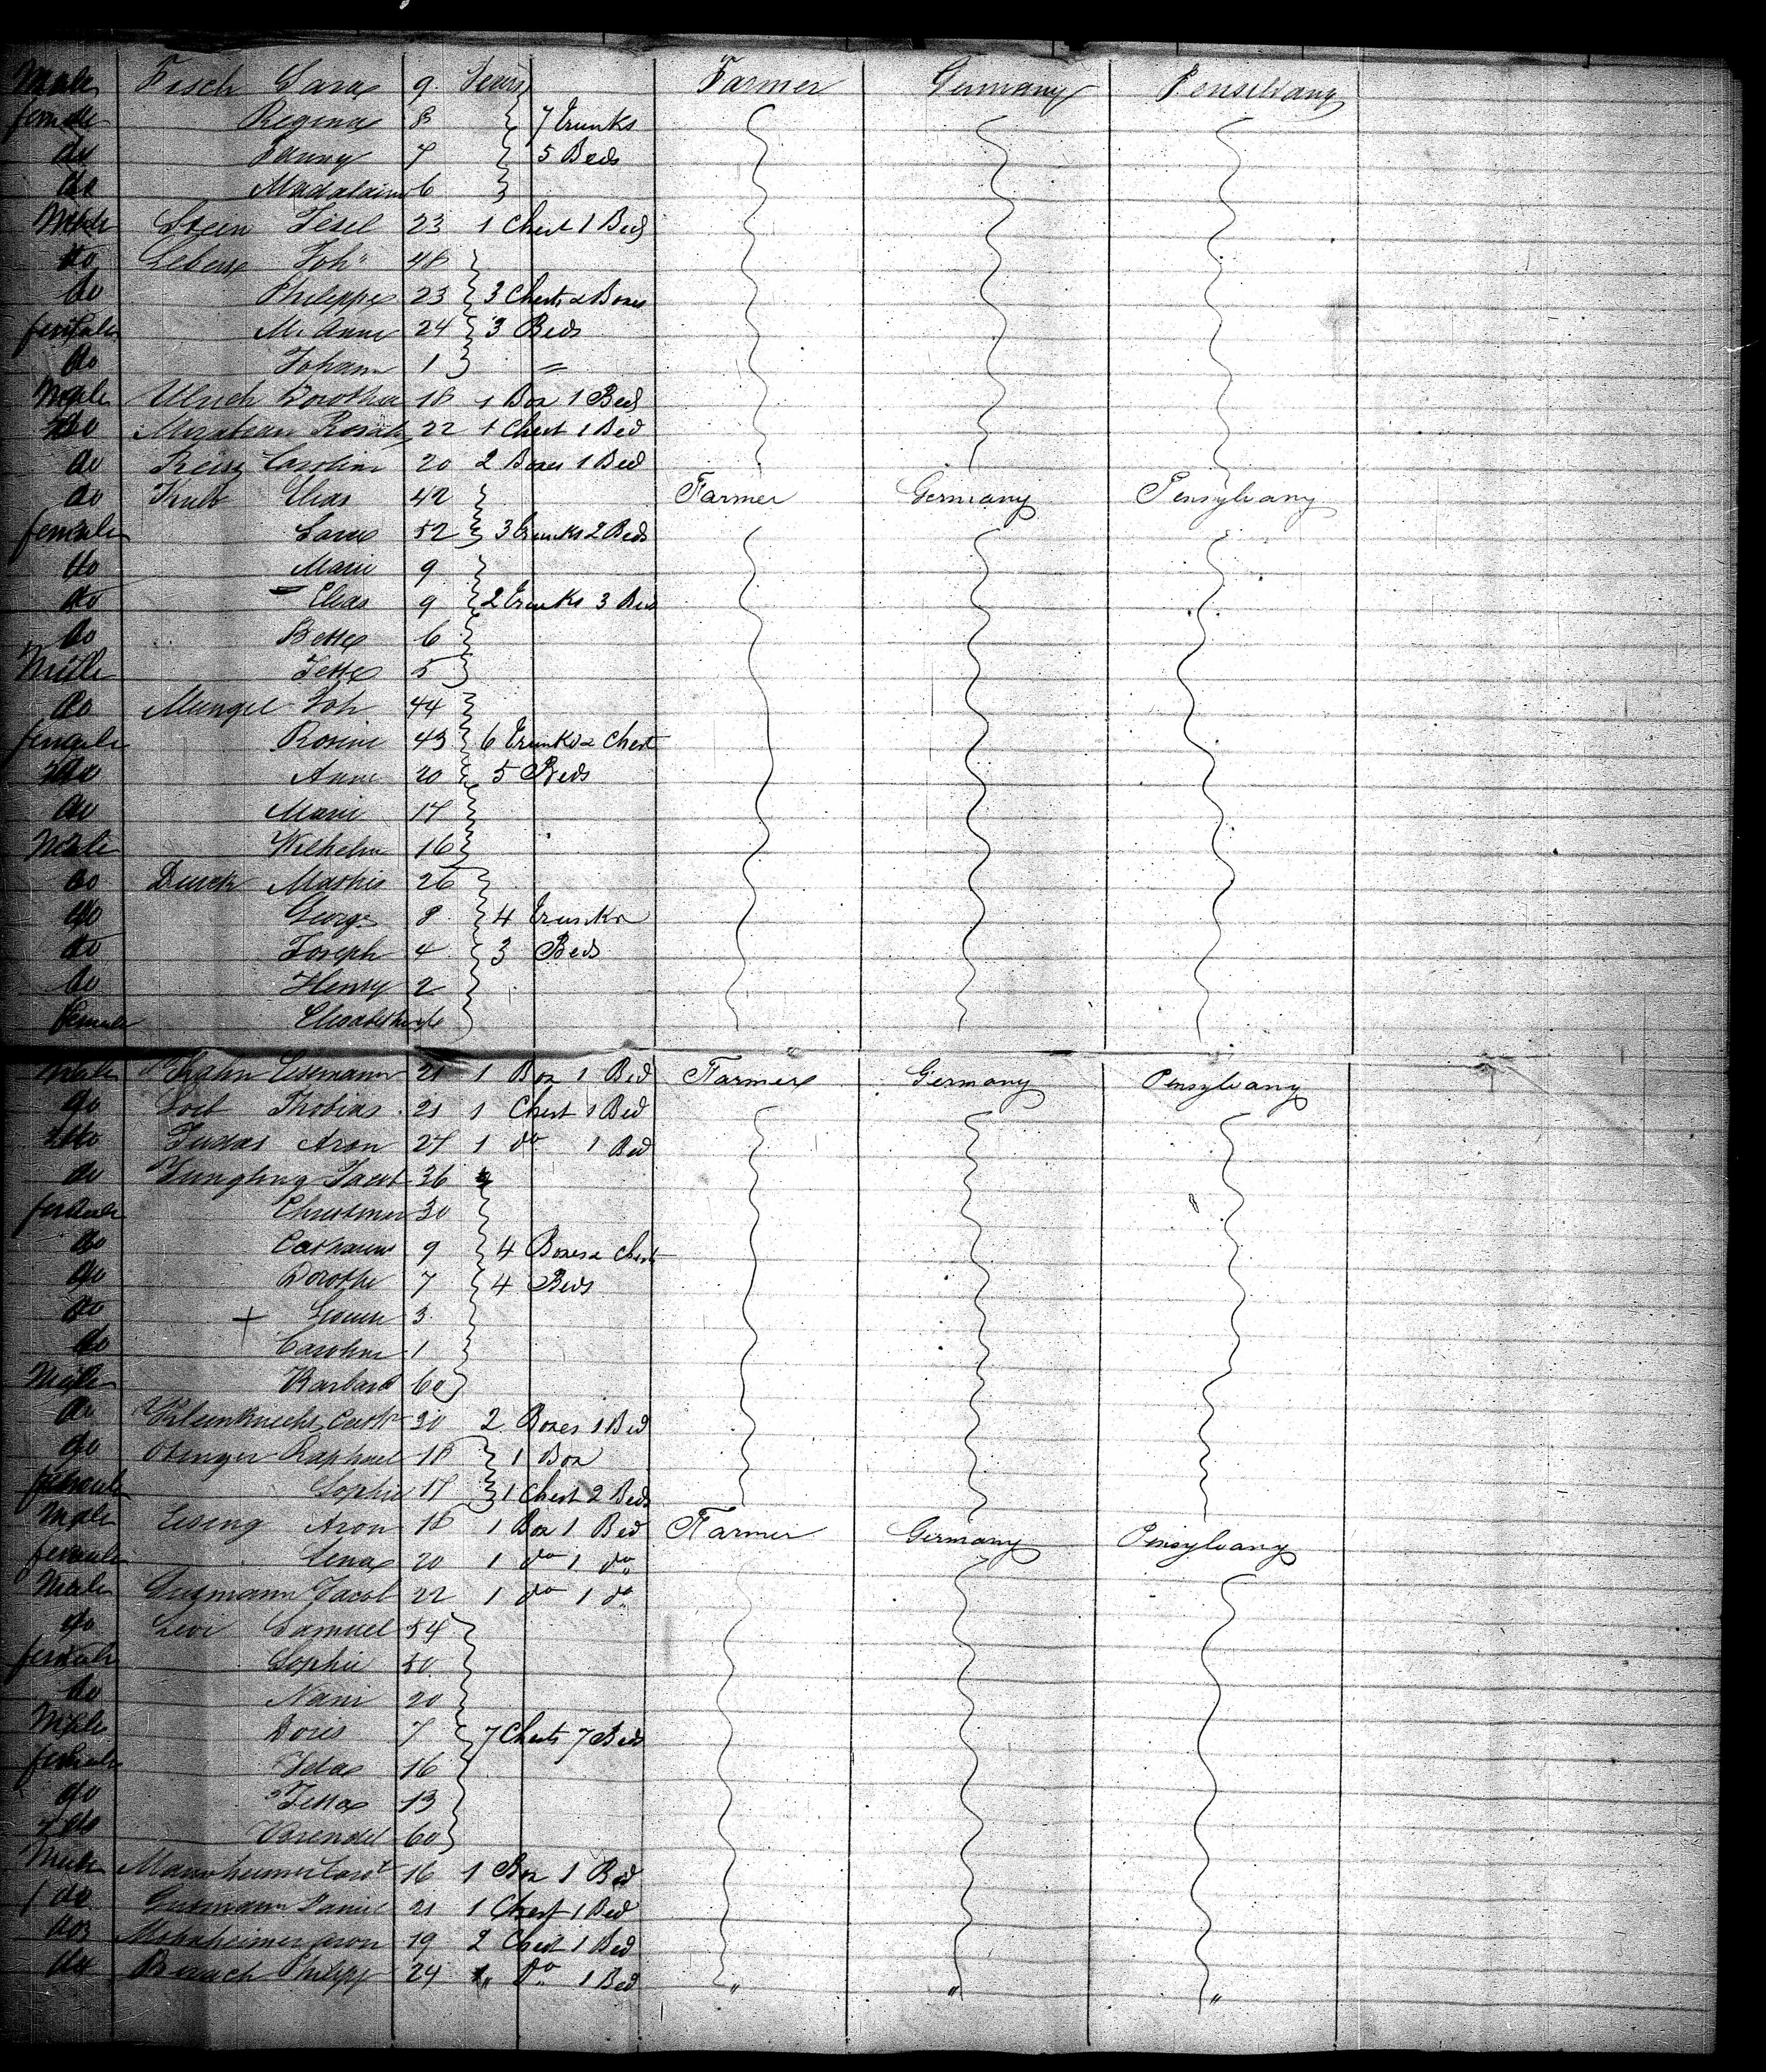 Male Fisch Sara 9 Years Farmer Germany Penselvany
female Regina 8 7 trunks
do Fanny 7 5 Beds
do Madalaine 6
Male Steen Fesel 23 1 Chest 1 Bed
do Joh 48
do Philippe 23 3 Chests & Boxes
female M. Anna 24 3 Beds
do Johann 1 "
Male Ulrich Dorothea 18 1 Box 1 Bed
do 22 1 Chest 1 Bed
do Caroline 20 2 Boxes 1 Bed
do Kulb Elias 42 Farmer Germany Pensylvany
female Sara 52 3 trunks 2 Beds
do Marie 9
do Elias 9 2 trunks 3 Beds
do Bette 6
Male Jette 5
do Mungel Joh 44
female Rosine 43 6 trunks & Chest
do Anna 20 5 Beds
do Marie 17
Male Wilhelm 16
do Durck Mathis 26
do George 8 4 trunks
do Joseph 4 3 Beds
do Henry 2
female Elisabetha
Male Khahn Eisemann 21 1 Box 1 Bed Farmer Germany Pensylvany
do Loeb Thobias 21 1 Chest 1 Bed
do Judas Aron 27 1 do 1 Bed
do Yungling Jacob 36
female Christine 30
do Catharine 9 4 Boxes & Chest
do Dorothe 7 4 Beds
do + 3
do Caroline 1
Male Barbara 60
do Kleinknecht 30 2 Boxes 1 Bed
do Obinger Raphael 18 1 Box
female Sophie 17 1 Chest 2 Beds
Male Eising Aron 18 1 Box 1 Bed Farmer Germany Pensylvany
female Lena 20 1 do 1 do
Male Gutmann Jacob 22 1 do 1 do
do Levi Samuel 54
female Sophie 50
do Nani 20
Male Doris 7 7 Chests 7 Beds
female Ida 16
do Jetta 13
do 60
Male Mannheimer 16 1 Box 1 Bed
do Gutmann Daniel 21 1 Chest 1 Bed
do Mohnheimer Aron 19 2 Chest 1 Bed
do Philipp 24 " do 1 Bed " " "